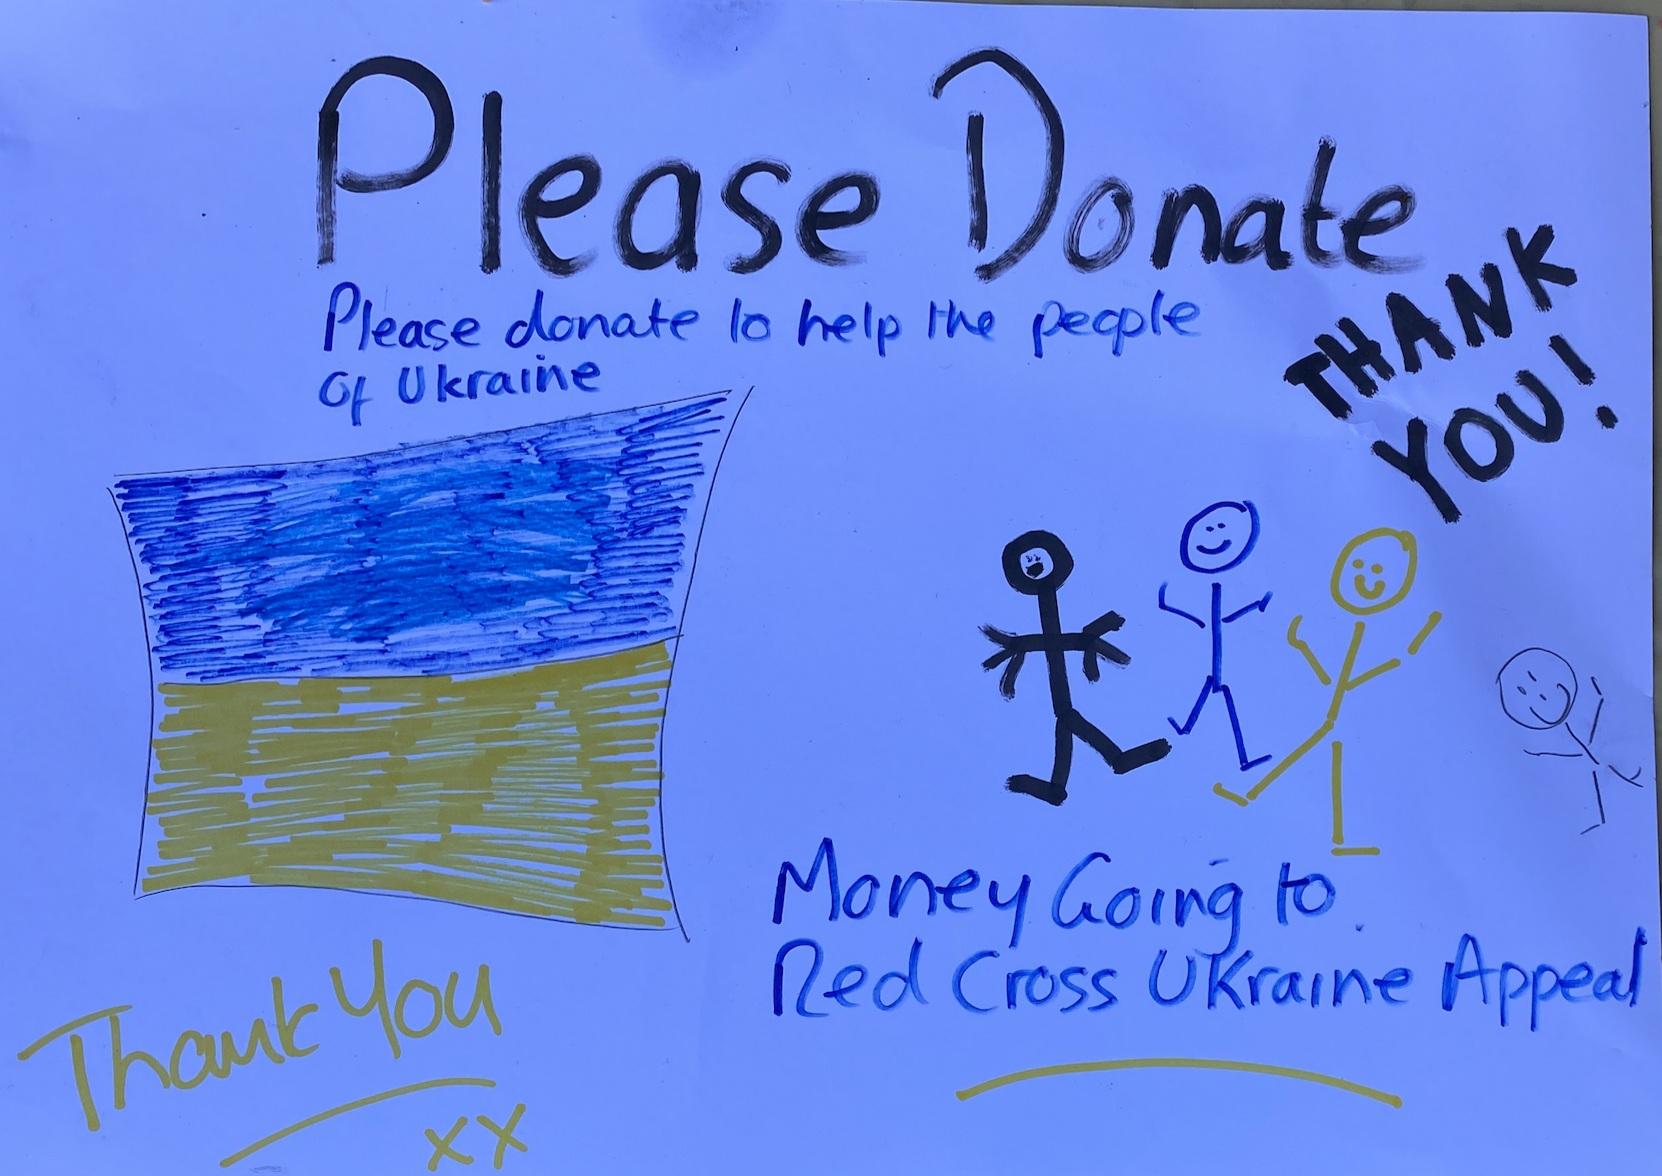 Please Donate
Please donate to help the people
of Ukraine
THANK
YOU!
Money Going to
Red Cross Ukraine Appeal
Thank You
xx